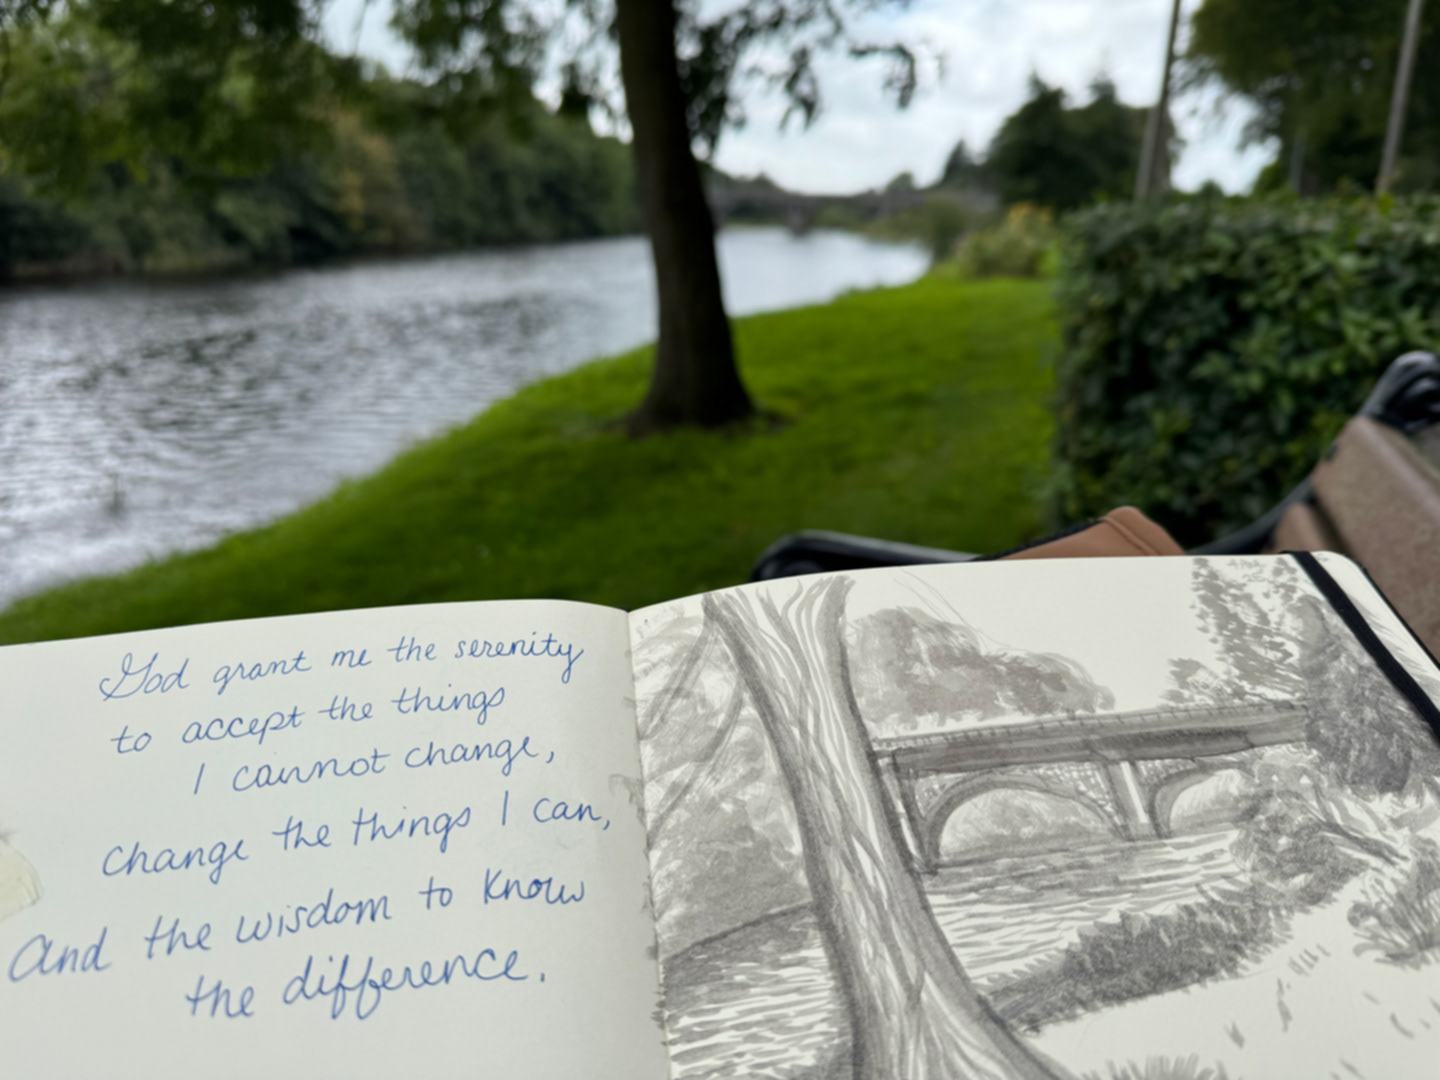 God grant me the serenity
to accept the things
I cannot change,
change the things I can,
And the wisdom to know
the difference.